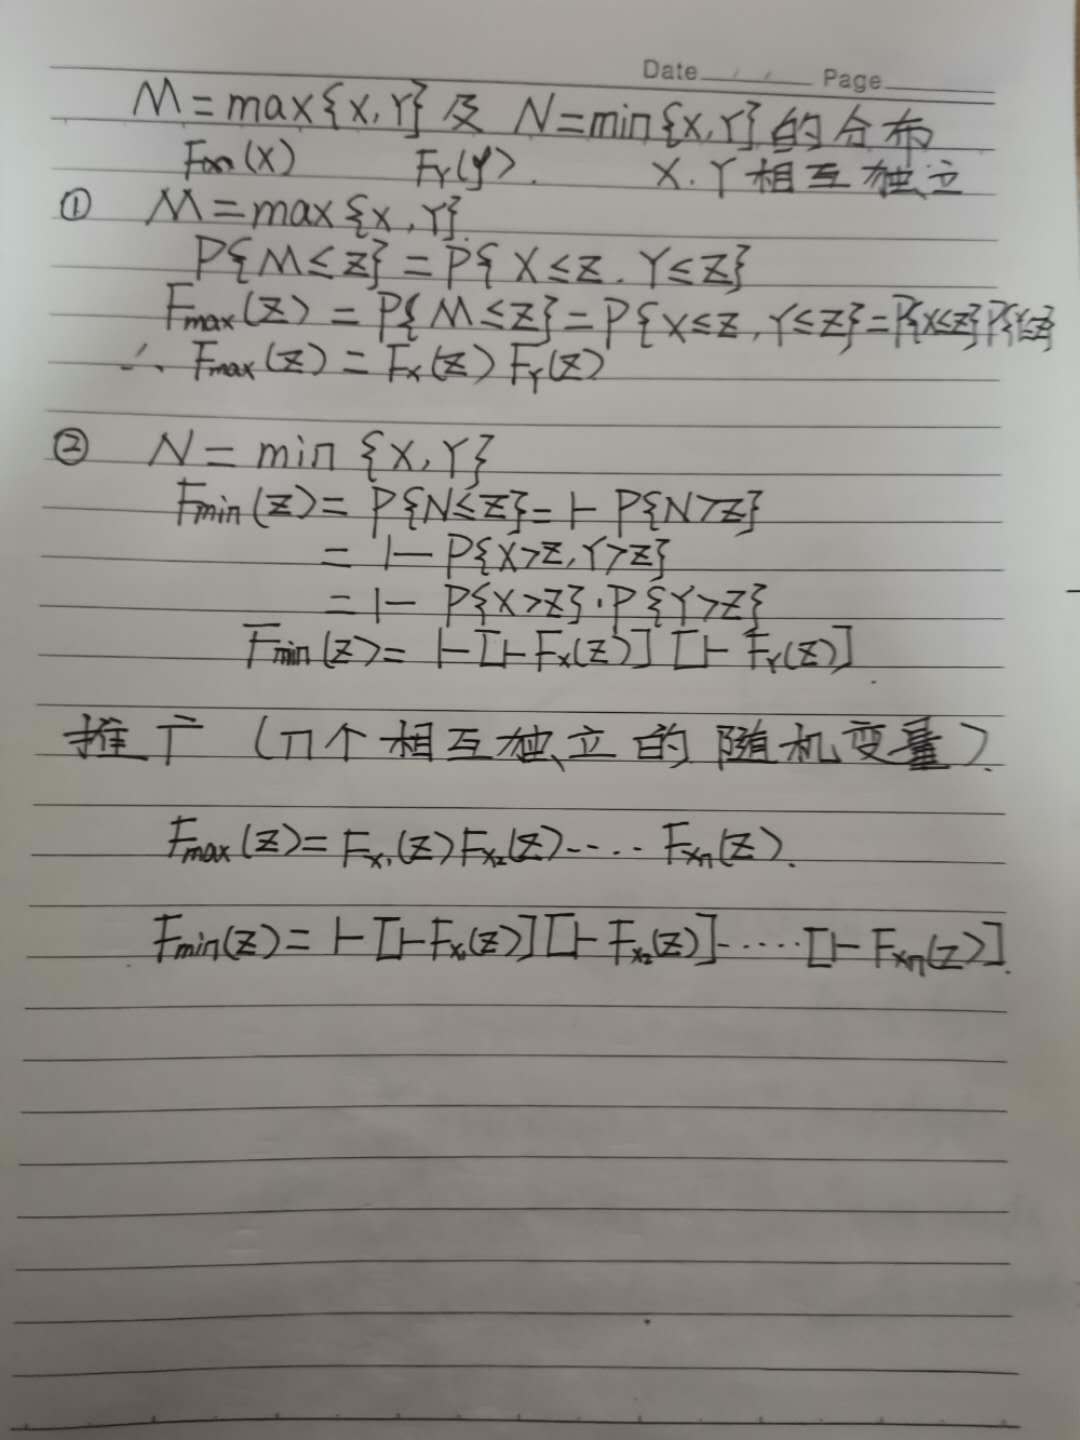 Date / / Page
M=max{X,Y}及 N=min{X,Y}的分布
(x) F_Y(y). X.Y相互独立
① M=max{X,Y}.
P{M≤z}=P{X≤z.Y≤z}
F_max(z)=P{M≤z}=P{X≤z,Y≤z}=P{X≤z}P{Y≤z}
∴ F_max(z)=F_X(z)F_Y(z)
② N=min{X,Y}
F_min(z)=P{N≤z}=1-P{N>z}
=1-P{X>z,Y>z}
=1-P{X>z}·P{Y>z}
F_min(z)=1-[1-F_X(z)][1-F_Y(z)].
推广(n个相互独立的随机变量).
F_max(z)=F_X₁(z)F_X₂(z)-····F_Xn(z).
F_min(z)=1-[1-F_X₁(z)][1-F_X₂(z)]-·····[1-F_Xn(z)].